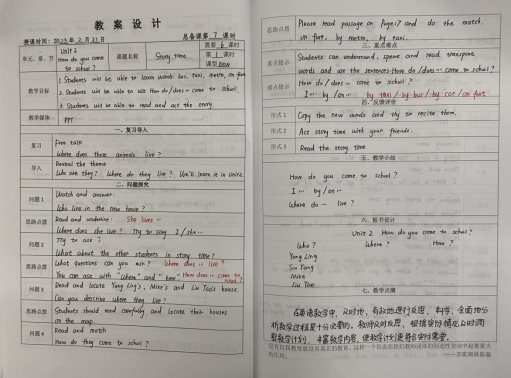 教案设计
授课时间: 2023年2月21日 总备课第7课时
单元、章、节 Unit 2 How do you come to school? 课题名称 Story time 需要6课时
第1课时
课型 new
教学目标 1. Students will be able to learn words: bus, taxi, metro, on foot
2. Students will be able to ask How do/does ... come to school?
3. Students will be able to read and act the story.
教学媒体 PPT
一、复习导入
复习 Free talk
Where does these animals live?
导入 Reveal the theme
Who are they? Where do they live? We'll learn it in Unit2.
二、问题探究
问题1 Watch and answer.
Who live in the new house?
思路点拨 Read and underline: She lives ...
Where does she live? Try to say I/she...
问题2 Try to ask?
What about the other students in story time?
思路点拨 What questions can you ask? Where does ... live?
You can ask with "where" and "how" How does ... come to school?
问题3 Read and locate Yang Ling's, Mike's and Liu Tao's house.
Can you describe where they live?
思路点拨 Students should read carefully and locate their houses
on the map.
问题4 Read and match
How do they come to school?
思路点拨 Please read passage on Page17 and do the match.
on foot, by metro, by taxi.
三、重点难点
重点提示 Students can understand, speak and read transpore
words and use the sentences: How do/does ... come to school?
难点提示 How do/does ... come to school?
I ... by /on ... by taxi / by bus / by car / on foot
四、反馈评价
形式1 Copy the new words and try to recite them.
形式2 Act story time with your friends.
形式3 Read the story time
五、教学小结
How do you come to school?
I ... by / on ...
Where do ... live?
六、板书设计
Unit 2 How do you come to school?
Who? Where? How?
Yang Ling
Su Yang
Mike
Liu Tao
七、教学点滴
在英语教学中,及时地、有效地进行反思,科学、全面地分
析教学过程是十分必要的。教师及时反思,根据实际情况及时调
整教学计划,丰富教学内容,使教学计划更符合实际需要。
没有自我教育就没有真正的教育。这样一个信念在我们教师的创造性劳动中起着重大
的作用。 ——苏霍姆林斯基